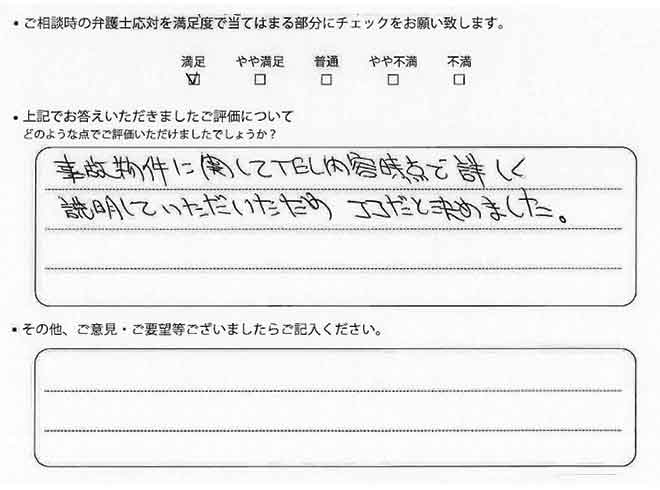 ・ご相談時の弁護士応対を満足度で当てはまる部分にチェックをお願い致します。
満足 やや満足 普通 やや不満 不満
・上記でお答えいただきましたご評価について
どのような点でご評価いただけましたでしょうか？
事故物件に関してTEL内容時点で詳しく
説明していただいただめ ココだと決めました。
・その他、ご意見・ご要望等ございましたらご記入ください。